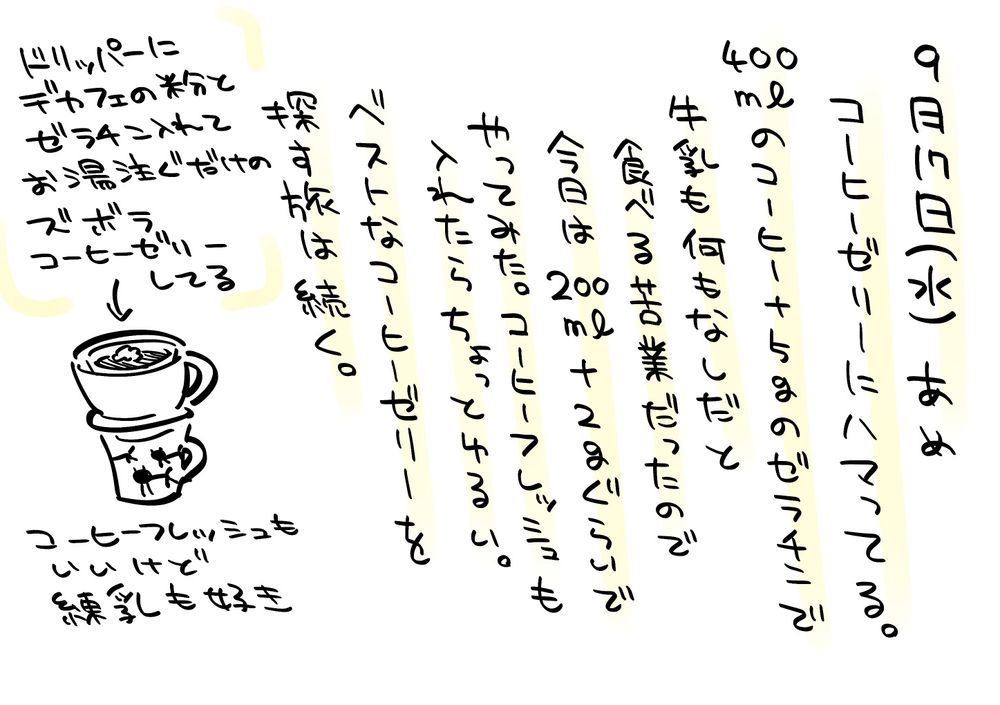 9月17日(水) あめ
コーヒーゼリーにハマってる。
400mlのコーヒー+5gのゼラチンで
牛乳も何もなしだと
食べる苦業だったので
今日は200ml+2gぐらいで
やってみた。コーヒーフレッシュも
入れたらちょっとゆるい。
ベストなコーヒーゼリーを
探す旅は続く。
ドリッパーに
デカフェの粉と
ゼラチン入れて
お湯注ぐだけの
ズボラ
コーヒーゼリー
してる
コーヒーフレッシュも
いいけど
練乳も好き